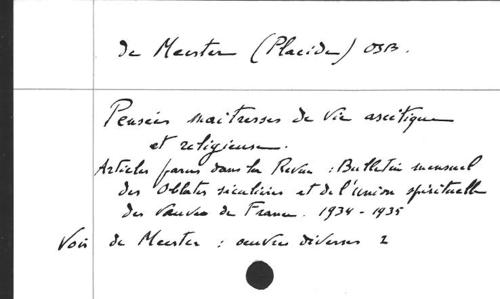 de Meester (Placide) OSB.
Pensées maitresses de vie ascétique
et religieuse.
Articles parus dans la Revue : Bulletin mensuel
des Oblates séculiers et de l'union spirituelle
des veuves de France. 1934 - 1935
Voir de Meester : oeuvres diverses 2